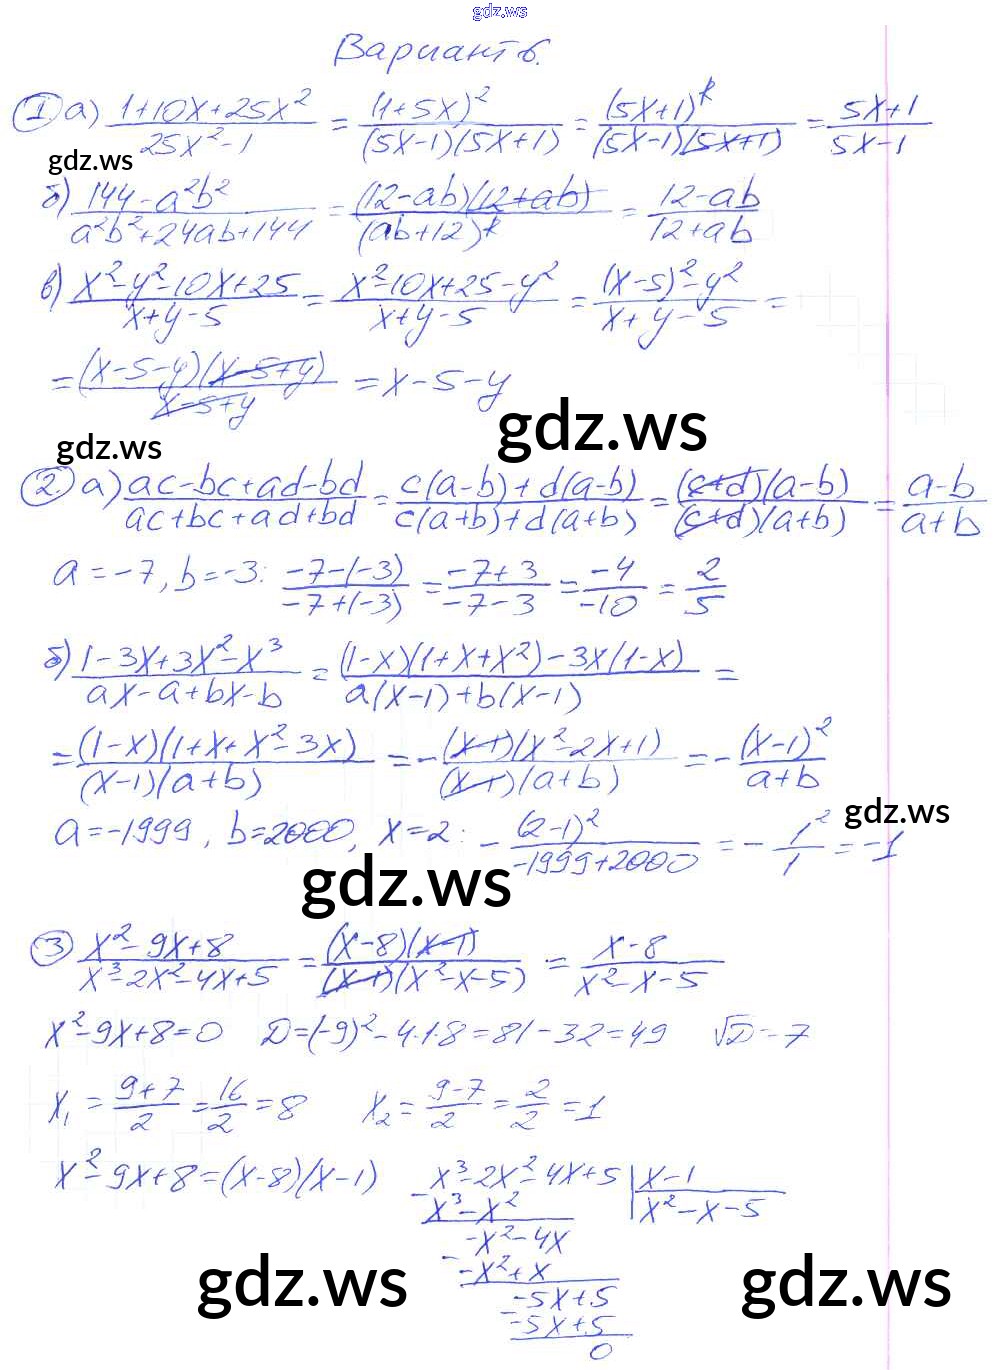 gdz.ws
Вариант 6.
① а) (1+10x+25x²)/(25x²-1) = (1+5x)²/((5x-1)(5x+1)) = (5x+1)²/((5x-1)(5x+1)) = (5x+1)/(5x-1)
gdz.ws
б) (144-a²b²)/(a²b²+24ab+144) = ((12-ab)(12+ab))/(ab+12)² = (12-ab)/(12+ab)
в) (x²-y²-10x+25)/(x+y-5) = (x²-10x+25-y²)/(x+y-5) = ((x-5)²-y²)/(x+y-5) =
= ((x-5-y)(x-5+y))/(x-5+y) = x-5-y
gdz.ws
gdz.ws
② а) (ac-bc+ad-bd)/(ac+bc+ad+bd) = (c(a-b)+d(a-b))/(c(a+b)+d(a+b)) = ((c+d)(a-b))/((c+d)(a+b)) = (a-b)/(a+b)
a=-7, b=-3: (-7-(-3))/(-7+(-3)) = (-7+3)/(-7-3) = (-4)/(-10) = 2/5
б) (1-3x+3x²-x³)/(ax-a+bx-b) = ((1-x)(1+x+x²)-3x(1-x))/(a(x-1)+b(x-1)) =
= ((1-x)(1+x+x²-3x))/((x-1)(a+b)) = -((x-1)(x²-2x+1))/((x-1)(a+b)) = -(x-1)²/(a+b)
gdz.ws
a=-1999, b=2000, x=2: -(2-1)²/(-1999+2000) = -1²/1 = -1
gdz.ws
③ (x²-9x+8)/(x³-2x²-4x+5) = ((x-8)(x-1))/((x-1)(x²-x-5)) = (x-8)/(x²-x-5)
x²-9x+8=0 D=(-9)²-4·1·8=81-32=49 √D=7
x₁ = (9+7)/2 = 16/2 = 8 x₂ = (9-7)/2 = 2/2 = 1
x²-9x+8=(x-8)(x-1) x³-2x²-4x+5 | x-1
x³-x² | x²-x-5
-x²-4x
-x²+x
-5x+5
-5x+5
0
gdz.ws gdz.ws